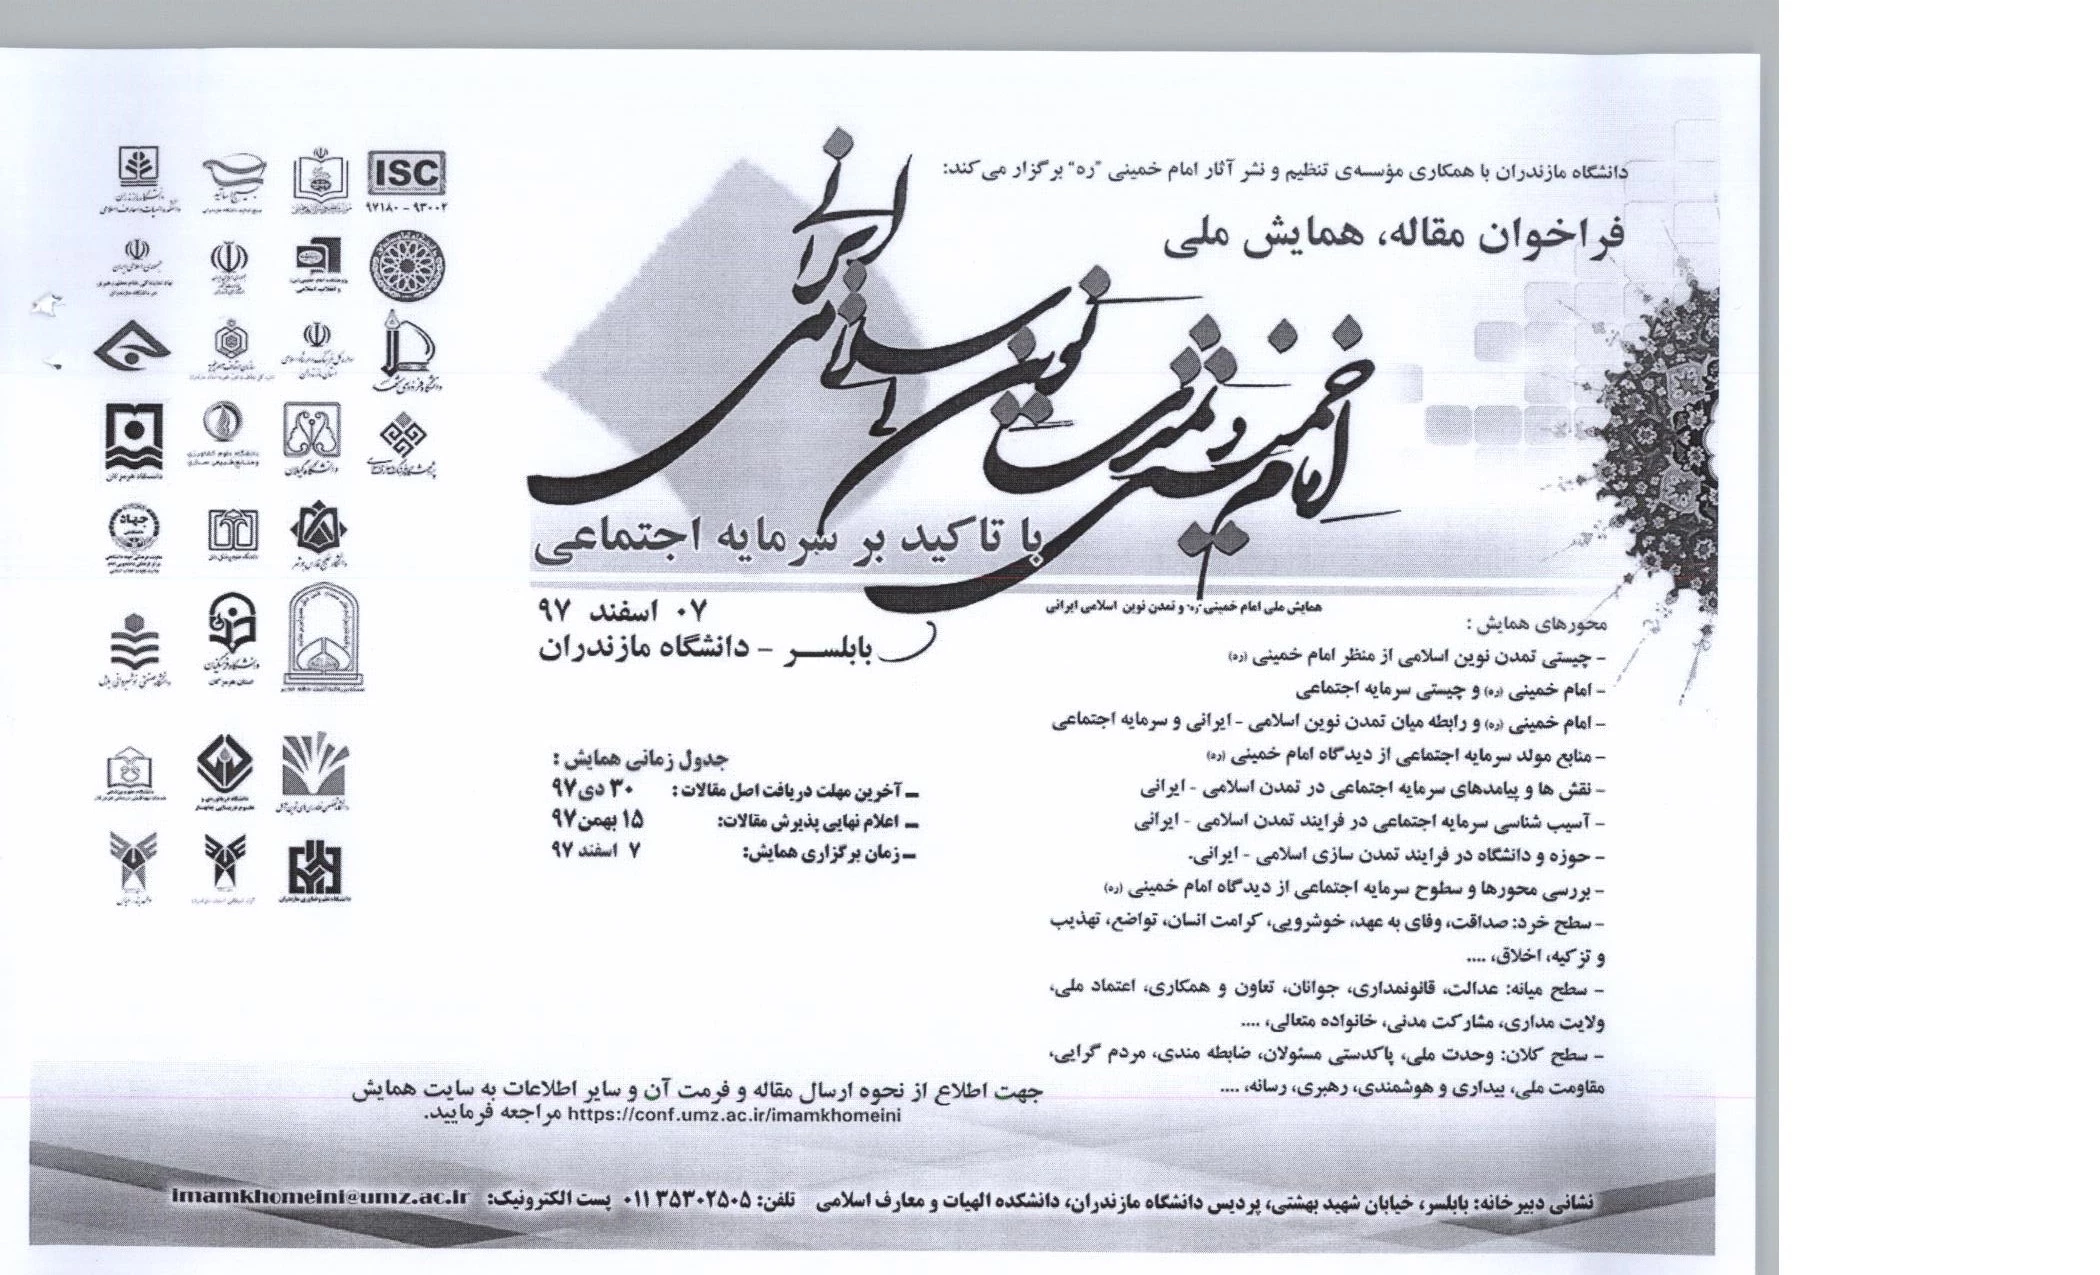 دانشگاه مازندران با همکاری مؤسسه‌ی تنظیم و نشر آثار امام خمینی "ره" برگزار می‌کند:
فراخوان مقاله، همایش ملی
امام خمینی و تمدن نوین اسلامی ایرانی
با تاکید بر سرمایه اجتماعی
همایش ملی امام خمینی "ره" و تمدن نوین اسلامی ایرانی
۰۷ اسفند ۹۷
بابلسر - دانشگاه مازندران
محورهای همایش :
- چیستی تمدن نوین اسلامی از منظر امام خمینی (ره)
- امام خمینی (ره) و چیستی سرمایه اجتماعی
- امام خمینی (ره) و رابطه میان تمدن نوین اسلامی - ایرانی و سرمایه اجتماعی
- منابع مولد سرمایه اجتماعی از دیدگاه امام خمینی (ره)
- نقش ها و پیامدهای سرمایه اجتماعی در تمدن اسلامی - ایرانی
- آسیب شناسی سرمایه اجتماعی در فرایند تمدن اسلامی - ایرانی
- حوزه و دانشگاه در فرایند تمدن سازی اسلامی - ایرانی.
- بررسی محورها و سطوح سرمایه اجتماعی از دیدگاه امام خمینی (ره)
- سطح خرد: صداقت، وفای به عهد، خوشرویی، کرامت انسان، تواضع، تهذیب
و تزکیه، اخلاق، ....
- سطح میانه: عدالت، قانونمداری، جوانان، تعاون و همکاری، اعتماد ملی،
ولایت مداری، مشارکت مدنی، خانواده متعالی، ....
- سطح کلان: وحدت ملی، پاکدستی مسئولان، ضابطه مندی، مردم گرایی،
مقاومت ملی، بیداری و هوشمندی، رهبری، رسانه، ....
جدول زمانی همایش :
- آخرین مهلت دریافت اصل مقالات : ۳۰ دی ۹۷
- اعلام نهایی پذیرش مقالات: ۱۵ بهمن ۹۷
- زمان برگزاری همایش: ۷ اسفند ۹۷
ISC
۹۷۱۸۰ - ۹۳۰۰۲
جهت اطلاع از نحوه ارسال مقاله و فرمت آن و سایر اطلاعات به سایت همایش
https://conf.umz.ac.ir/imamkhomeini مراجعه فرمایید.
نشانی دبیرخانه: بابلسر، خیابان شهید بهشتی، پردیس دانشگاه مازندران، دانشکده الهیات و معارف اسلامی تلفن: ۰۱۱۳۵۳۰۲۵۰۵ پست الکترونیک: imamkhomeini@umz.ac.ir